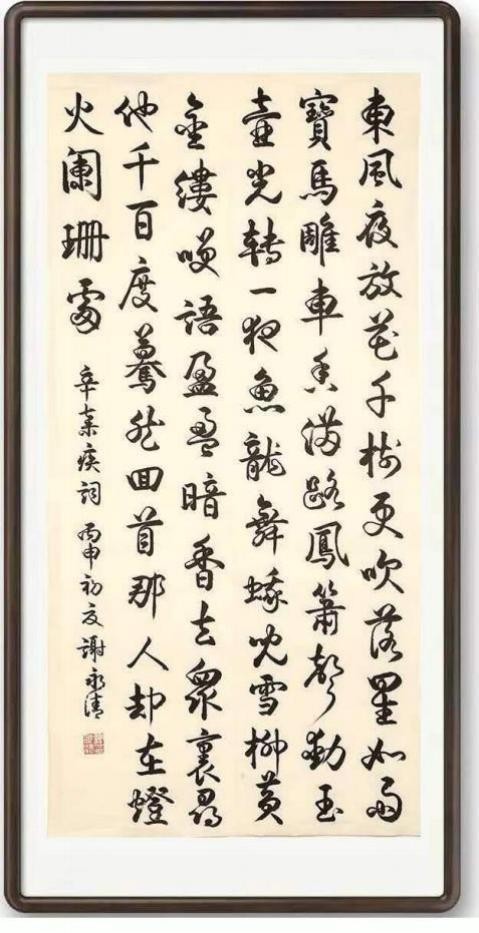 東風夜放花千樹更吹落星如雨
寶馬雕車香滿路鳳簫聲動玉
壺光轉一夜魚龍舞蛾兒雪柳黄
金縷咲語盈盈暗香去衆裏尋
他千百度驀然回首那人却在燈
火闌珊處
辛棄疾詞 丙申初夏 謝永清